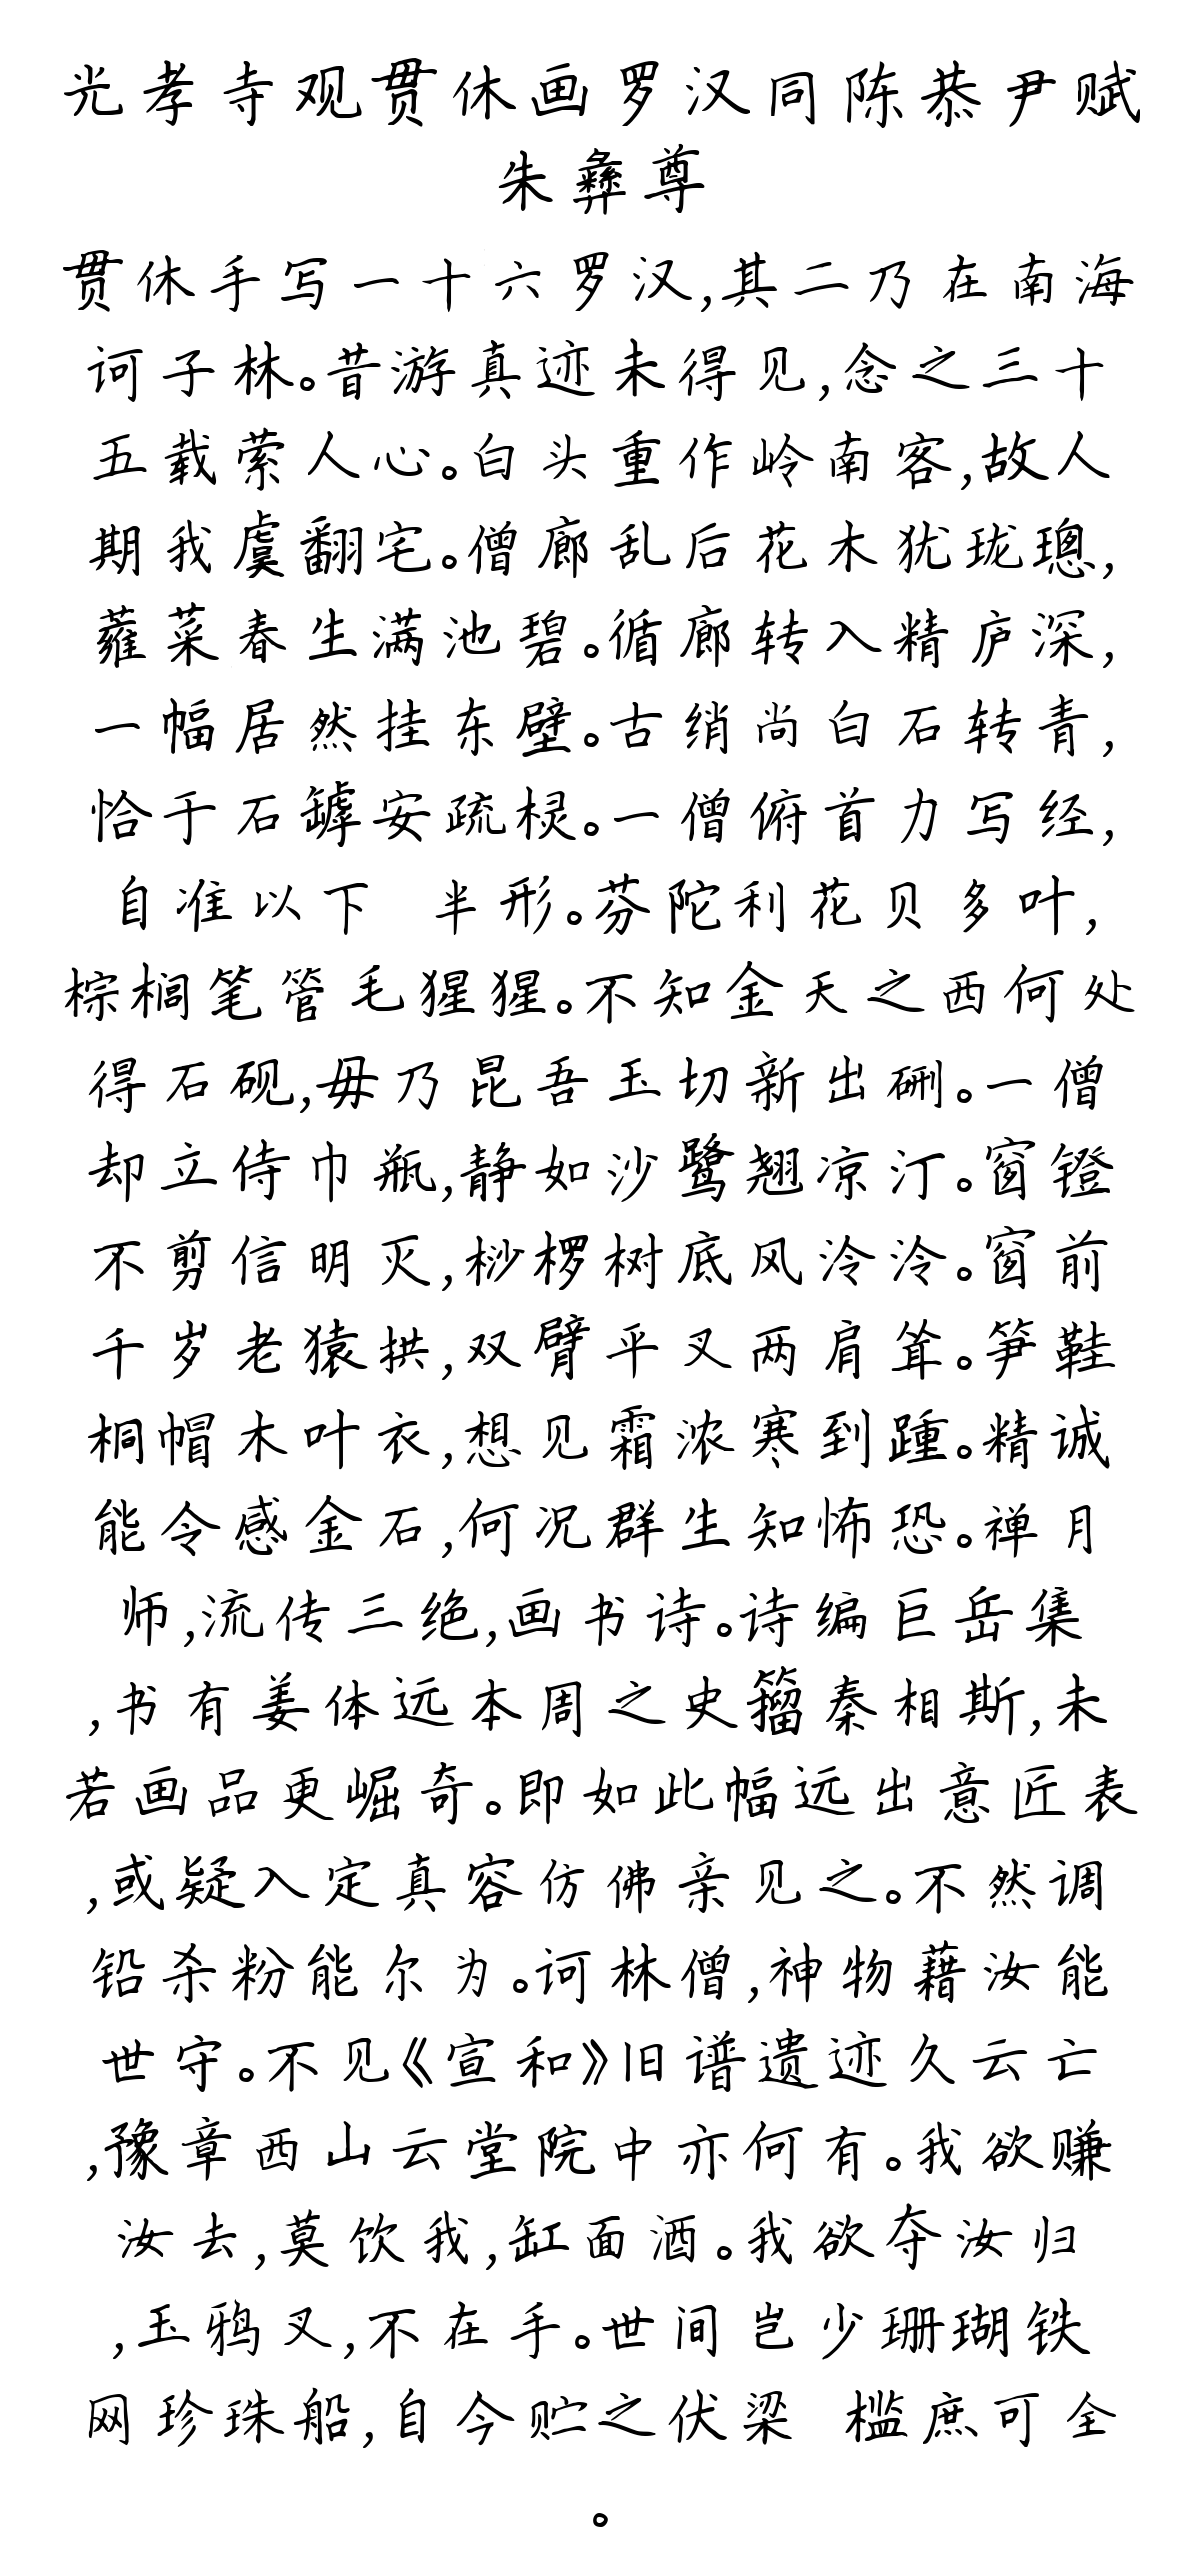 光孝寺观贯休画罗汉同陈恭尹赋
朱彝尊
贯休手写一十六罗汉,其二乃在南海
诃子林。昔游真迹未得见,念之三十
五载萦人心。白头重作岭南客,故人
期我虞翻宅。僧廊乱后花木犹珑璁,
蕹菜春生满池碧。循廊转入精庐深,
一幅居然挂东壁。古绡尚白石转青,
恰于石罅安疏棂。一僧俯首力写经,
自准以下 半形。芬陀利花贝多叶,
棕榈笔管毛猩猩。不知金天之西何处
得石砚,毋乃昆吾玉切新出硎。一僧
却立侍巾瓶,静如沙鹭翘凉汀。窗镫
不剪信明灭,桫椤树底风泠泠。窗前
千岁老猿拱,双臂平叉两肩耸。笋鞋
桐帽木叶衣,想见霜浓寒到踵。精诚
能令感金石,何况群生知怖恐。禅月
师,流传三绝,画书诗。诗编巨岳集
,书有姜体远本周之史籀秦相斯,未
若画品更崛奇。即如此幅远出意匠表
,或疑入定真容仿佛亲见之。不然调
铅杀粉能尔为。诃林僧,神物藉汝能
世守。不见《宣和》旧谱遗迹久云亡
,豫章西山云堂院中亦何有。我欲赚
汝去,莫饮我,缸面酒。我欲夺汝归
,玉鸦叉,不在手。世间岂少珊瑚铁
网珍珠船,自今贮之伏梁 槛庶可全
。